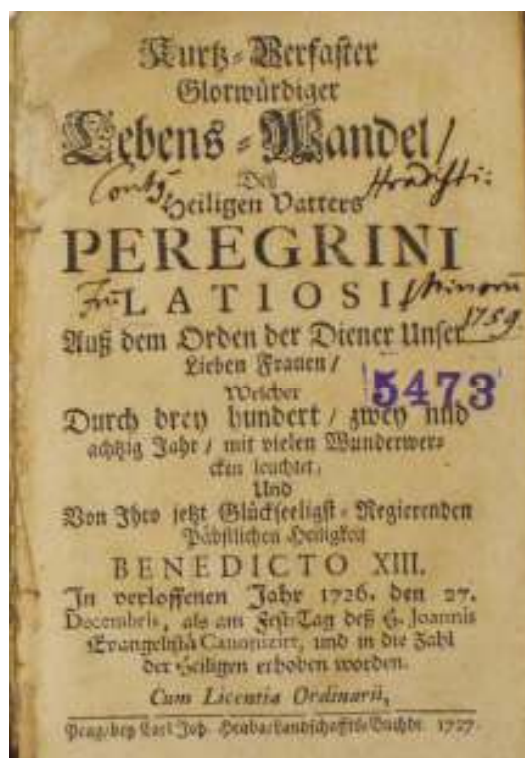 Kurtz-Verfaster
Glorwürdiger
Lebens-Wandel /
Deß
Heiligen Vatters
PEREGRINI
LATIOSI,
Auß dem Orden der Diener Unser
Lieben Frauen /
Welcher
Durch drey hundert / zwey und
achtzig Jahr / mit vielen Wunderwer-
cken leuchtet,
Und
Von Ihro jetzt Glückseeligst-Regierenden
Päbstlichen Heiligkeit
BENEDICTO XIII.
In verloffenen Jahr 1726. den 27.
Decembris, als am Fest-Tag deß H. Joannis
Evangelistä Canonizirt, und in die Zahl
der Heiligen erhoben worden.
Cum Licentia Ordinarii,
Prag / bey Carl Joh. Hraba / Landschaffts-Buchdr. 1727.
Minorū
1759
5473